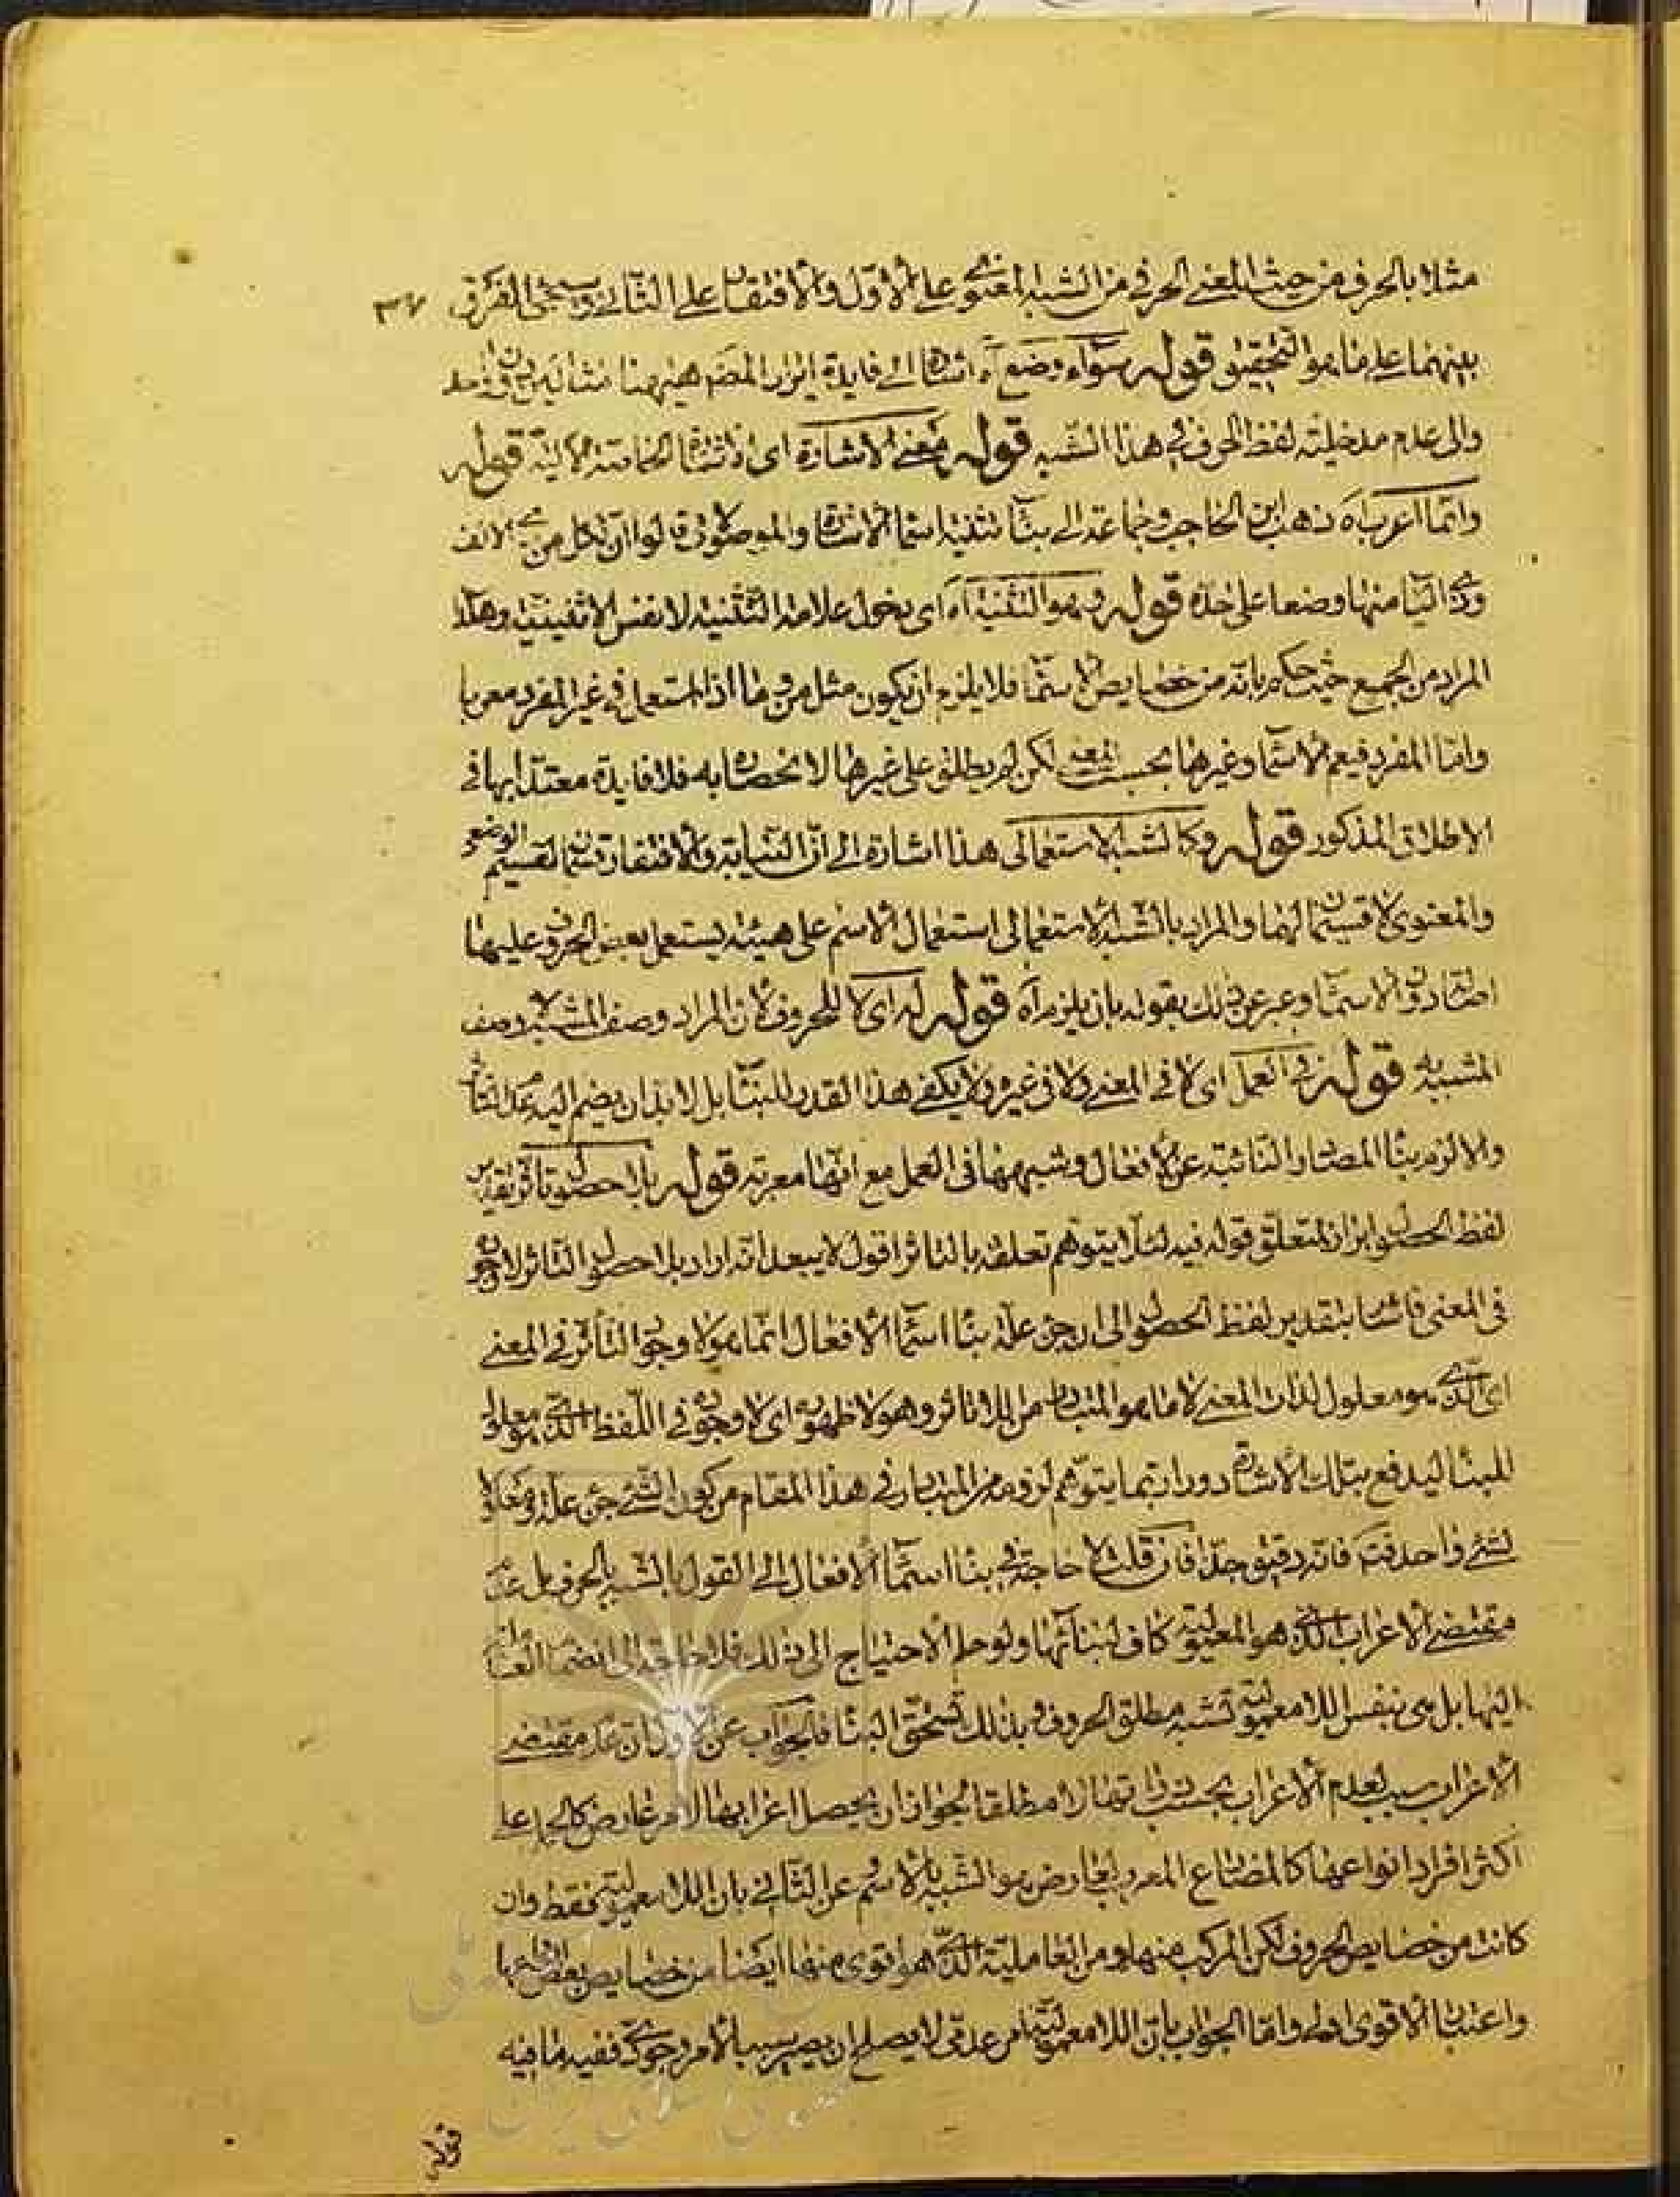 مثلا بالحرف من حيث المعنى الحرفي من الشبه المعنوي على الاول والافتقار على الثاني وسيجئ الفرق ٣٧
بينهما على ما هو التحقيق قوله سواء وضع آه اشارة الى فايدة ايراد المص هيهنا مثالين
والى عدم مدخلية لفظ الحرف في هذا الشبه قوله معنى الاشارة اى قوله
وانما اعرب آه ذهب ابن الحاجب وجماعة الى بناء تثنية اسماء الاشارة والموصول وقالوا ان كل من ذي الالف
وذي الياء منها وضعا على حدة قوله وهو التثنية آه اى دخول علامة التثنية لا نفس الاثنينية وهكذا
المراد من الجميع حيث حكم بانه من خصايص الاسماء فلا يلزم ان يكون مثل من وما اذا استعمل في غير المفرد معربا
واما المفرد فيعم الاسماء وغيرها بحسب لكن لم يطلق على غيرها لانحصاره به فلا فايدة معتدا بها في
الاطلاق المذكور قوله وكالشبه الاستعمالى هذا اشارة الى ان النيابة والافتقار قسمان لقسيم الوضعى
والمعنوى لا قسيمان لهما والمراد بالشبه الاستعمالى استعمال الاسم على هيئة يستعمل بعض الحروف عليها
دون الاسماء وعبر عن ذلك بقوله بان يلزم آه قوله له اى لا للحروف لان المراد وصف المشبه لا وصف
المشبه به قوله في العمل اى لا في المعنى ولا في غيره ولا يكفى هذا القدر للبناء بل لا بد ان يضم اليه عدم التأثر
والا لزم بناء المصادر النائبة عن الافعال وشبهها في العمل مع انها معربة قوله بلا حصول تأثر تقدير
لفظ الحصول ابراز لمتعلق قوله فيه لئلا يتوهم تعلقه بالتأثر اقول لا يبعد انه اراد بلا حصول التأثر لا وجوده
في المعنى فاشار بتقدير لفظ الحصول الى ان جزء علة بناء اسماء الافعال انما هو لا وجود التأثر في المعنى
اى الذي هو معلول لذات المعنى لا ما هو المتبادر من اللا تأثر وهو لا ظهوره اى لا وجوده في اللفظ الذي هو معلول
البناء ليدفع بتلك الاشارة دورا ربما يتوهم لزومه من المتبادر في هذا المقام من كون الشئ جزء علة ومعلولا
لشئ واحد فتم فانه دقيق جدا فان قلت لا حاجة في بناء اسماء الافعال الى القول بالشبه بالحرف بل عدم
مقتضى الاعراب الذي هو المعمولية كاف لبنائها ولو سلم الاحتياج الى ذلك فلا حاجة الى انضمام العمل
اليها بل هي بنفس اللا معمولية تشبه مطلق الحروف وبذلك تستحق البناء فالجواب عن الاول ان عدم مقتضى
الاعراب سبب لعدم الاعراب بحسب ذاتها لا مطلقا لجواز ان يحصل اعرابها لامر عارض كالحمل على
اكثر افراد انواعها كالمضارع المعرب لعارض هو الشبه بالاسم وعن الثاني بان اللا معمولية فقط وان
كانت من خصايص الحروف لكن المركب منها ومن العاملية الذي هو اقوى منها ايضا من خصايص بعض انواعها
واعتبار الاقوى اولى واما الجواب بان اللا معمولية امر عدمى لا يصلح ان يصير سببا لامر وجودي ففيه ما فيه
قوله